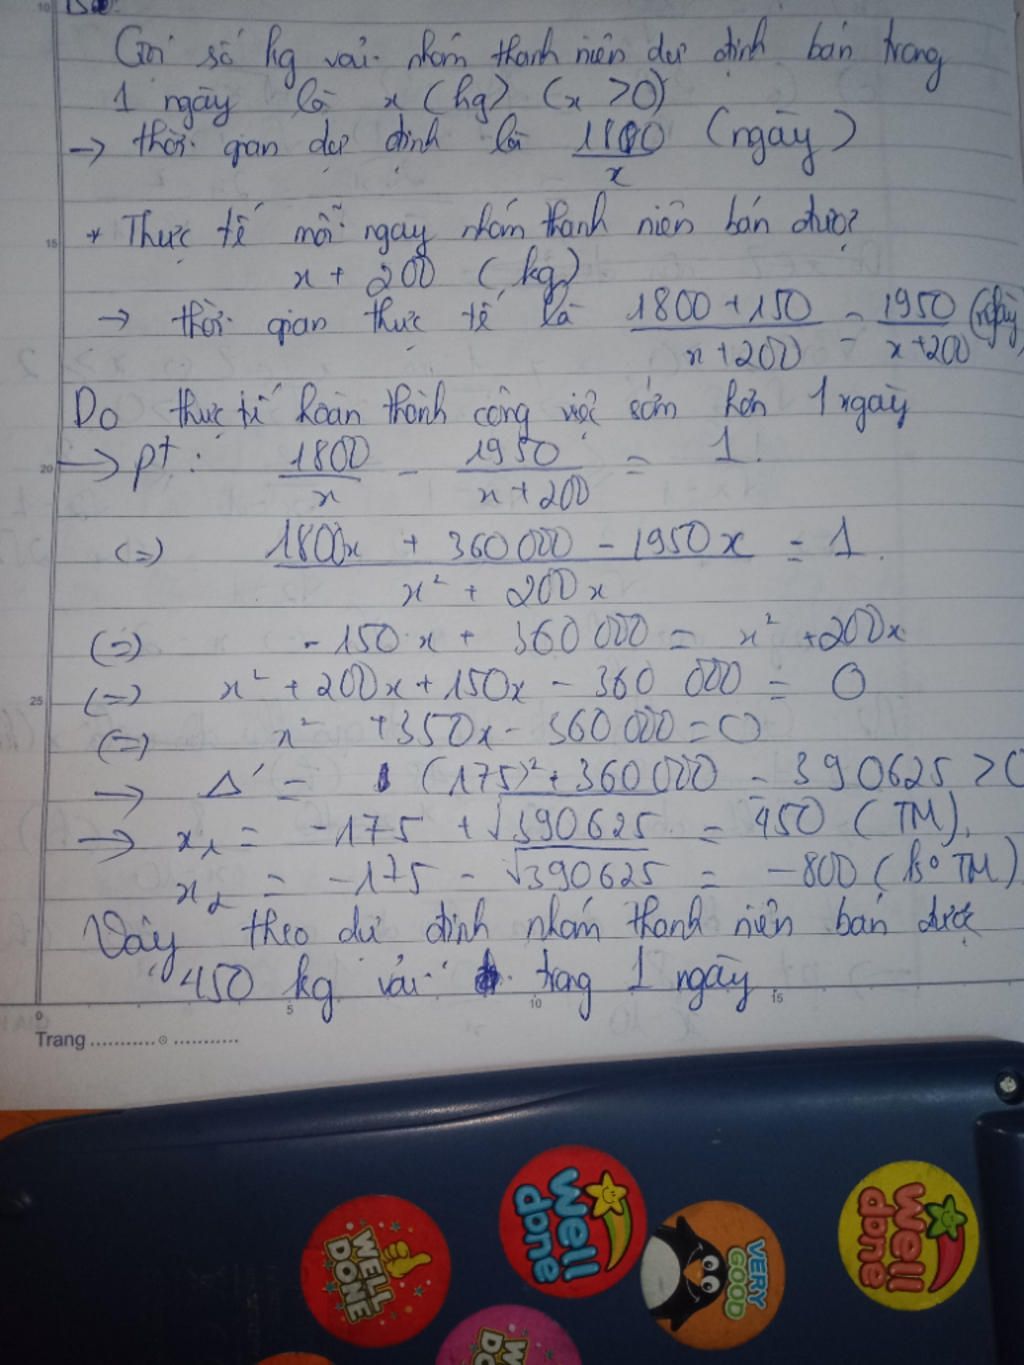 Bài
Gọi số kg vải nhóm thanh niên dự định bán trong
1 ngày là x (kg) (x > 0)
→ thời gian dự định là 1800/x (ngày)
* Thực tế mỗi ngày nhóm thanh niên bán được
x + 200 (kg)
→ thời gian thực tế là (1800 + 150)/(x + 200) = 1950/(x + 200) (ngày)
Do thực tế hoàn thành công việc sớm hơn 1 ngày
→ pt: 1800/x - 1950/(x + 200) = 1.
(=) (1800x + 360 000 - 1950x)/(x² + 200x) = 1.
(=) -150x + 360 000 = x² + 200x
(=) x² + 200x + 150x - 360 000 = 0
(=) x² + 350x - 360 000 = 0
→ Δ' = (175)² + 360 000 = 390625 > 0
→ x₁ = -175 + √390625 = 450 (TM).
x₂ = -175 - √390625 = -800 (ko TM)
Vậy theo dự định nhóm thanh niên bán được
450 kg vải trong 1 ngày
10
15
20
25
0
5
10
15
Trang ...........⊙ ...........
WELL DONE
well done
VERY GOOD
well done
WELL DONE